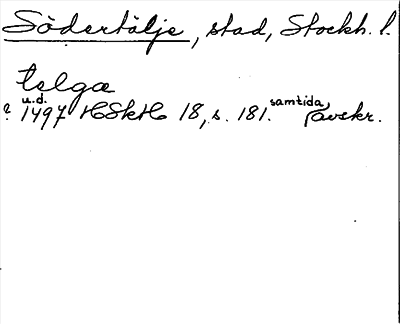 Södertälje, stad, Stockh. l.
telgæ
u.d. samtida
? 1497 HSkH 18, s. 181. avskr.